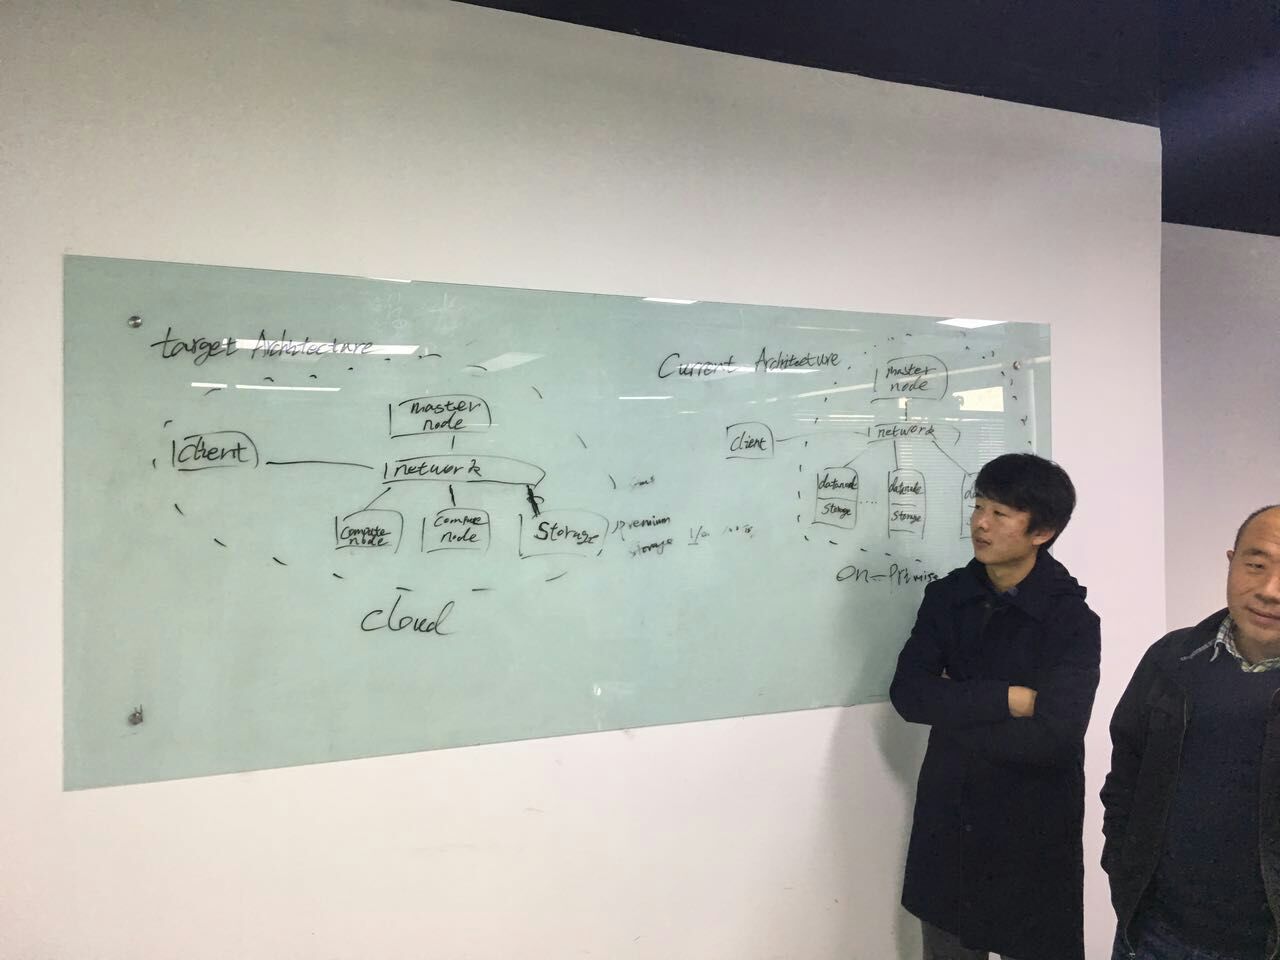 target Architecture
master
node
client
network
Compute
node
Compute
node
Storage
premium
storage
cloud
Current Architecture
master
node
client
network
datanode
Storage
datanode
Storage
da
On-Premise